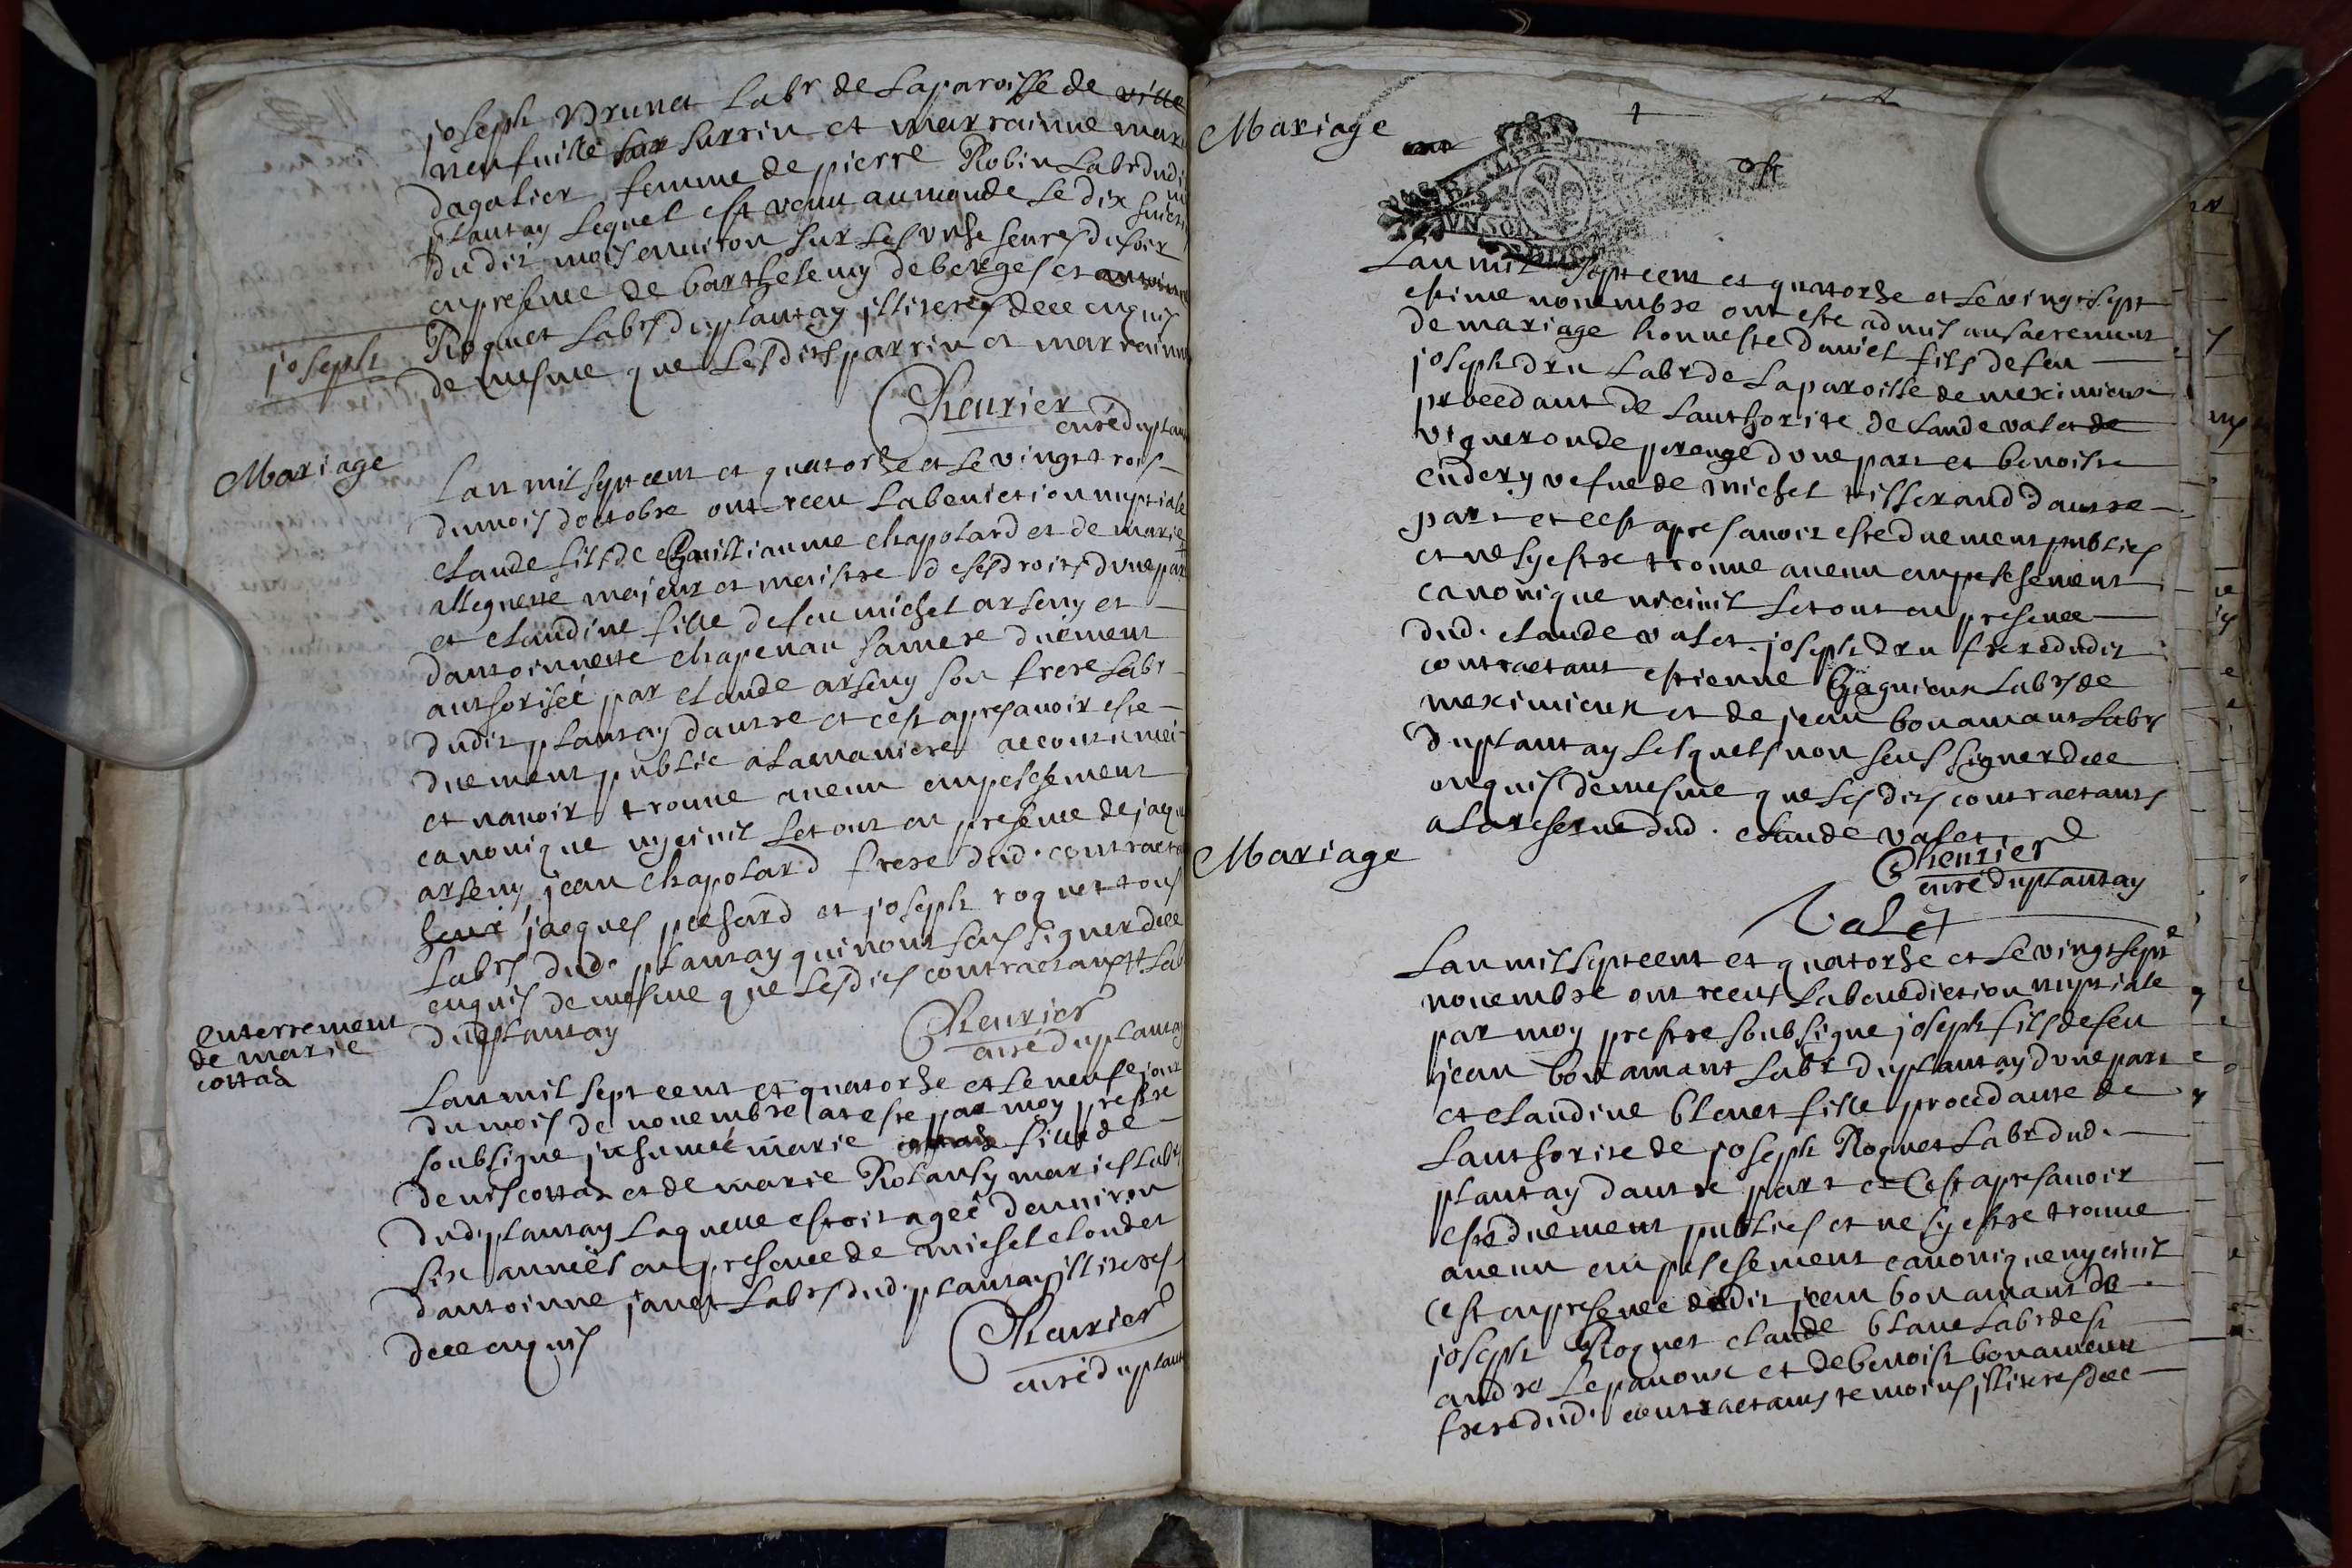 joseph Brunet Labr de Laparoisse de ville
neufuille parrin et marrainne mar
dagalier femme de pierre Robin Labr dudi
plantay Lequel est venu aumonde Le dix huict
du dit mois enuiron sur Les unse heures du soir
en presence de barthelemy deborges et
joseph
Roquet Labrs du plantay jlliteres de ce enquis
de mesme que Lesdits parrin et marrainne
Cheurier
curé du plan
Mariage
Lan mil sept cent et quatorse et Le vingt trois
du mois doctobre ont receu La beniction nuptiale
claude fils de Guilliaume chapolard et de marie
majeur et maistre de ses droits dune par
et claudine fille de feu michel arseny et
dantoinnette chapenau sa mere duëment
authorisée par claude arseny son frere Labr
dudit plantay dautre et cest apres auoir este
duement publié a La maniere accoutumeé
et nauoir trouue aucun empeschement
canonique ny ciuil Le tout en presence de jaq
arseny jean chapolard frere dud. contracta
jacques pochard et joseph roquet tous
Labrs dud. plantay qui nont sceus signer de ce
enquis de mesme que Lesdits contractants Lab
dud plantay
Cheurier
curé du plantay
enterrement
de marie
cottas
Lan mil sept cent et quatorse et Le neufe jour
du mois de nouembre at este par moy prestre
soubsigne jnhumeé marie cottas fille de
denis cottas et de marie Rolansy maries Labrs
dud plantay Laquelle estoit ageê denuiron
six anneés en presence de michel cloudet
dantoinne janet Labrs dud. plantay jlliteres
de ce enquis
Cheurier
curé du plant
Mariage
Lan mil sept cent et quatorse et Le vingt sept
estime nouembre ont este admis au sacrement
de mariage honneste daniel fils de feu
joseph dru Labr de La paroisse de meximieux
procedant de Lauthorite de claude valet de
vigneron de perouge dune part et benoiste
cudery vefue de michel tisserand dautre
part et cest apres auoir este duement publies
et ne sy estre trouue aucun empeschement
canonique ni ciuil Le tout en presence
dud. claude valet joseph dru frere dudit
contractant estienne Gagnieux Labrs de
meximieux et de jean bonamant Labr
du plantay Lesquels non sceus signer de ce
enquis de mesme que Lesdits contractants
a La reserue dud. claude valet
Cheurier
curé du plantay
Valet
Mariage
Lan mil sept cent et quatorse et Le vingt septe
nouembre ont receus La benediction nuptiale
par moy prestre soubsigne joseph fils de feu
jean bonamant Labr du plantay dune part
et claudine blenet fille procedante de
Lauthorite de joseph Roquet Labr dud.
plantay dautre part et cest apres auoir
este duement publies et ne sy estre trouue
aucun empeschement canonique ny ciuil
cest en presence dudit jean bonamant de
joseph Roquet claude blanc Labr de st
andre Le panoux et de benoist bonamant
frere dud. contractants temoins jlliteres de ce